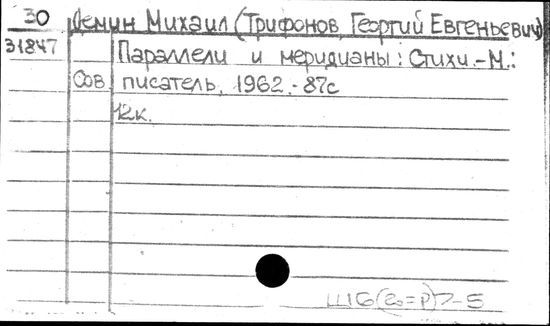 30 Демин Михаил (Трифонов, Георгий Евгеньевич)
31847 Параллели и меридианы: Стихи.-М.:
Сов. писатель, 1962.-87с
12к.
Ш6(2=Р)7-5